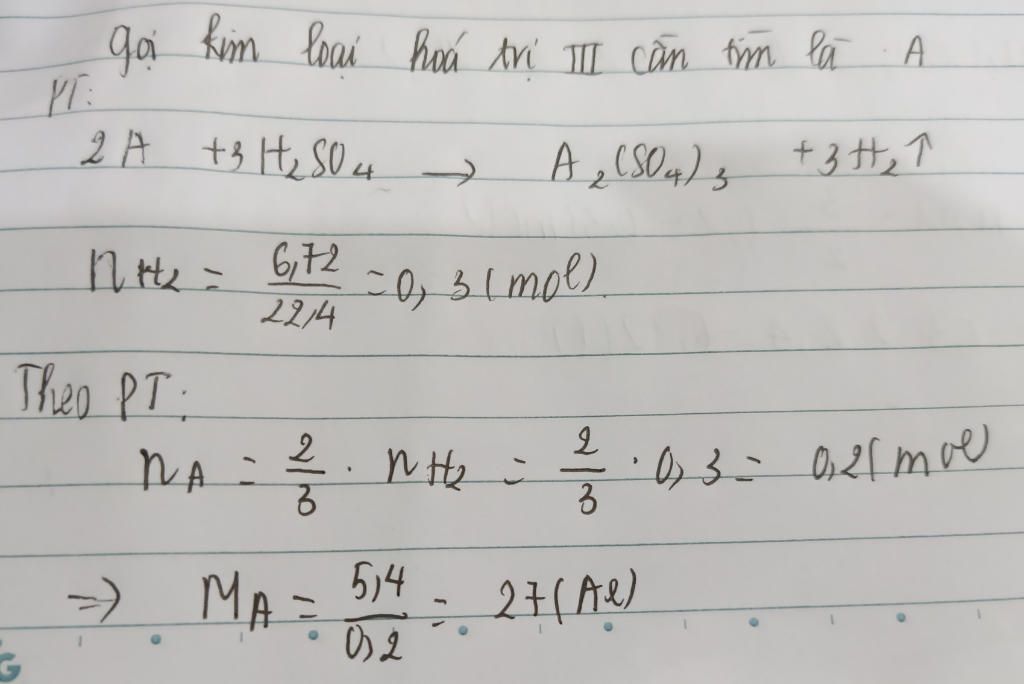 gọi kim loại hoá trị III cần tìm là A
PT:
2A +3H₂SO₄ → A₂(SO₄)₃ +3H₂↑
nH₂ = 6,72/22,4 = 0,3 (mol)
Theo PT:
nA = 2/3 . nH₂ = 2/3 . 0,3 = 0,2 (mol)
=> MA = 5,4/0,2 = 27 (Al)
G